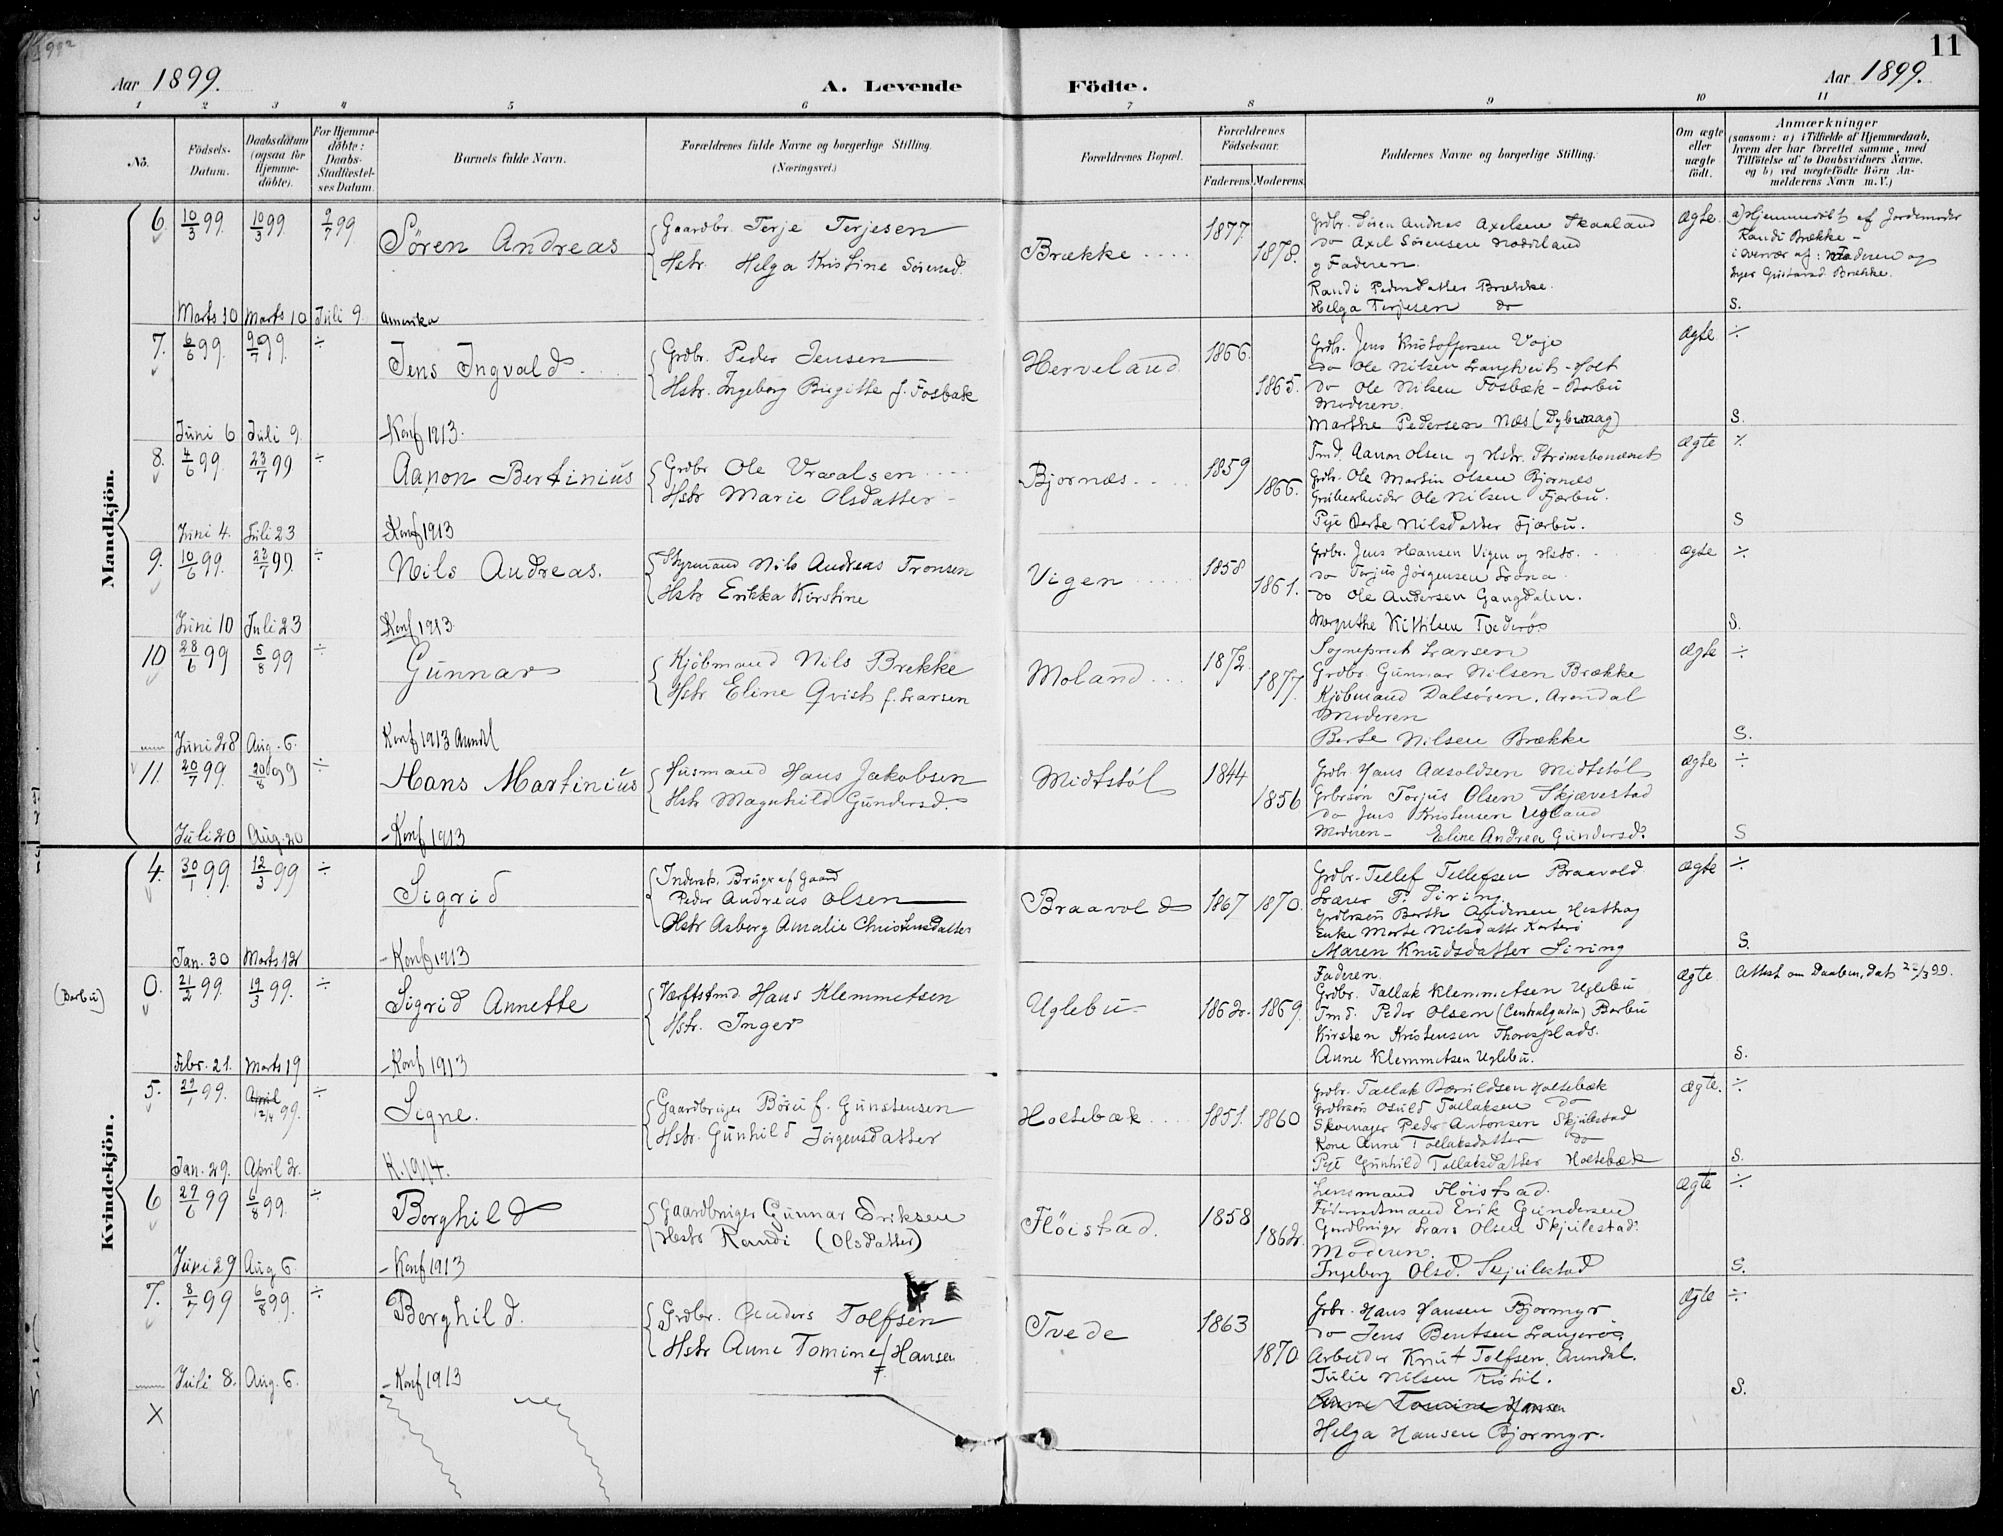 11
Aar 1899.
A. Levende Födte.
Aar 1899.
1 2 3 4 5 6 7 8 9 10 11
No.
Födsels-Datum.
Daabsdatum (ogsaa for Hjemmedöbte).
For Hjemmedöbte: Daabs-Stadfæstelses Datum.
Barnets fulde Navn.
Forældrenes fulde Navne og borgerlige Stilling. (Næringsvei.)
Forældrenes Bopæl.
Forældrenes Födselsaar.
Faderens. Moderens.
Faddernes Navne og borgerlige Stilling.
Om ægte eller uægte födt.
Anmærkninger
(saasom: a) i Tilfælde af Hjemmedaab, hvem der har forrettet samme, med Tilföielse af to Daabsvidners Navne, og b) ved uægtefödte Börn Anmelderens Navn m. V.)
Mandkjön.
6. 10/3 99 10/3 99 9/7 99
Sören Andreas
Gaardbr. Terje Terjesen
Hstr. Helga Kristine Sörensd.
Brække
1877 1878.
Grdbr. Sören Andreas Axelsen Skaaland
do Axel Sörensen
g Faderen.
Randi Pedersdatter Brække.
Helga Terjesen do
ægte.
a) Hjemmedöbt af Jordemoder
Randi Brække –
i overvær af: Moderen og
Brække.
S.
Marts 10 Marts 10 Juli 9. Amerika
7. 6/6 99. 9/7 99. ÷
Jens Ingvald
Grdbr. Peder Jensen
Hstr. Ingeborg Birgitte f. Fosbæk
Herveland
1866. 1865.
Grdbr. Jens Kristoffersen Voje
do Ole Nilsen Langtveit - Holt
do Ole Nilsen Fosbæk - Barbu
Moderen.
Marthe Pedersen Næs (Dybvaag)
ægte ÷
S.
Juni 6 Juli 9. – Konf 1913.
8. 4/6 99. 23/7 99 ÷
Aanon Bertinius
Grdbr Ole Vraalsen
Hstr Marie Olsdatter
Bjornæs
1859 1866.
Tmd. Aanon Olsen og Hstr. Strømsbonæset
Grdbr. Ole Martin Olsen Bjornæs
Grubearbeider Ole Nilsen Fjærbu.
Pige Berte Nilsdatter Fjærbu.
ægte ÷
S
Juni 4. Juli 23 Konf 1913
9. 10/6 99. 23/7 99. ÷
Nils Andreas.
Styrmand Nils Andreas Tronsen
Hstr Erikka Kirstine
Vigen
1858 1861.
Grdbr. Jens Hansen Vigen og Hstr.
do Terjus Jörgensen
do Ole Andersen Gangdalen.
Margrethe Kittilsen
ægte ÷
S.
Juni 10 Juli 23 Konf 1913
10 28/6 99 6/8 99 ÷
Gunnar
Kjöbmand Nils Brække
Hstr Eline Qvist f. Larsen
Moland
1872. 1877.
Sogneprest Larsen
Grdbr Gunnar Nilsen Brække
Kjöbmand Dalsören, Arendal
Moderen
Berte Nilsen Brække
ægte ÷
S.
Juni 28 Aug. 6. Konf 1913 Arendal
11. 20/7 99. 20/8 99 ÷
Hans Martinius
Husmand Hans Jakobsen
Hstr Magnhild Gundersd.
Midtstöl
1844 1856
Grdbr Hans Aasoldsen Midtstöl
Grbrsön Terjus Olsen Skjævestad
do Jens Kristensen Ugland
Moderen – Eline Andrea Gundersd.
ægte ÷
S
Juli 20 Aug. 20 – Konf 1913
Kvindekjön.
4. 30/1 99. 12/3 99 ÷
Sigrid
Indersk. Bruger af Gaard
Peder Andreas Olsen
Hstr Asborg Amalie Christensdatter
Braavold
1867 1870.
Grdbr. Tellef Tellefsen Braavold
Lærer P. Siring.
Grdbrsön Berth Andersen
Enke Marte Nilsdatter
Maren Knudsdatter Siring
ægte ÷
S.
Jan. 30 Marts 12 – Konf 1913
(Barbu) 0. 21/2 99. 19/3 99. ÷
Sigrid Annette
Værftstmd Hans Klemmetsen
Hstr. Inger
Uglebu
1862. 1869.
Faderen.
Grdbr. Tallak Klemmetsen Uglebu
Tmd. Peder Olsen (Centralgaden) Barbu
Kirsten Kristensen Thoresplads.
Anne Klemmetsen Uglebu.
ægte Attest om Daaben, dat. 22/3 99.
S.
Febr. 21. Marts 19 – Konf 1913
5. 29/1 99. 2/4 99. ÷
Signe.
Gaardbruger Böru f. Gunstensen
Hstr. Gunhild Jörgensdatter
Holtebæk
1851. 1860
Grdbr. Tallak Holtebæk
Grdbrsön Osuld Tallaksen do
Skomager Peder Antonsen Skjulestad
Kone Anne Tallaksdatter do
Pige Gunhild Tallaksdatter Holtebæk
ægte. ÷
S.
Jan. 29. April 2. K. 1914.
6 29/6 99 6/8 99. ÷
Borghild
Gaardbruger Gunnar Eriksen
Hstr Randi (Olsdatter)
Flöistad.
1858 1862.
Lensmand Flöistad.
Föderaadsmand Erik Gundersen
Gaardbruger Lars Olsen Skjulestad
Moderen.
Ingeborg Olsd. Skjulestad
ægte ÷
S.
Juni 29 Aug 6. – Konf 1913
7. 8/7 99 6/8 99. ÷
Borghild.
Grdbr. Anders Tolfsen
Hstr Anne Tomine f. Hansen
Tvede
1863 1870
Grbr. Hans Hansen Bjormyr
do Jens Bentsen
Arbeider Knut Tolfsen. Arendal.
Julie Nilsen
Anne Tomine Hansen
Helga Hansen Bjormyr.
ægte ÷
S.
Juli 8. Aug. 6. – Konf 1913
X